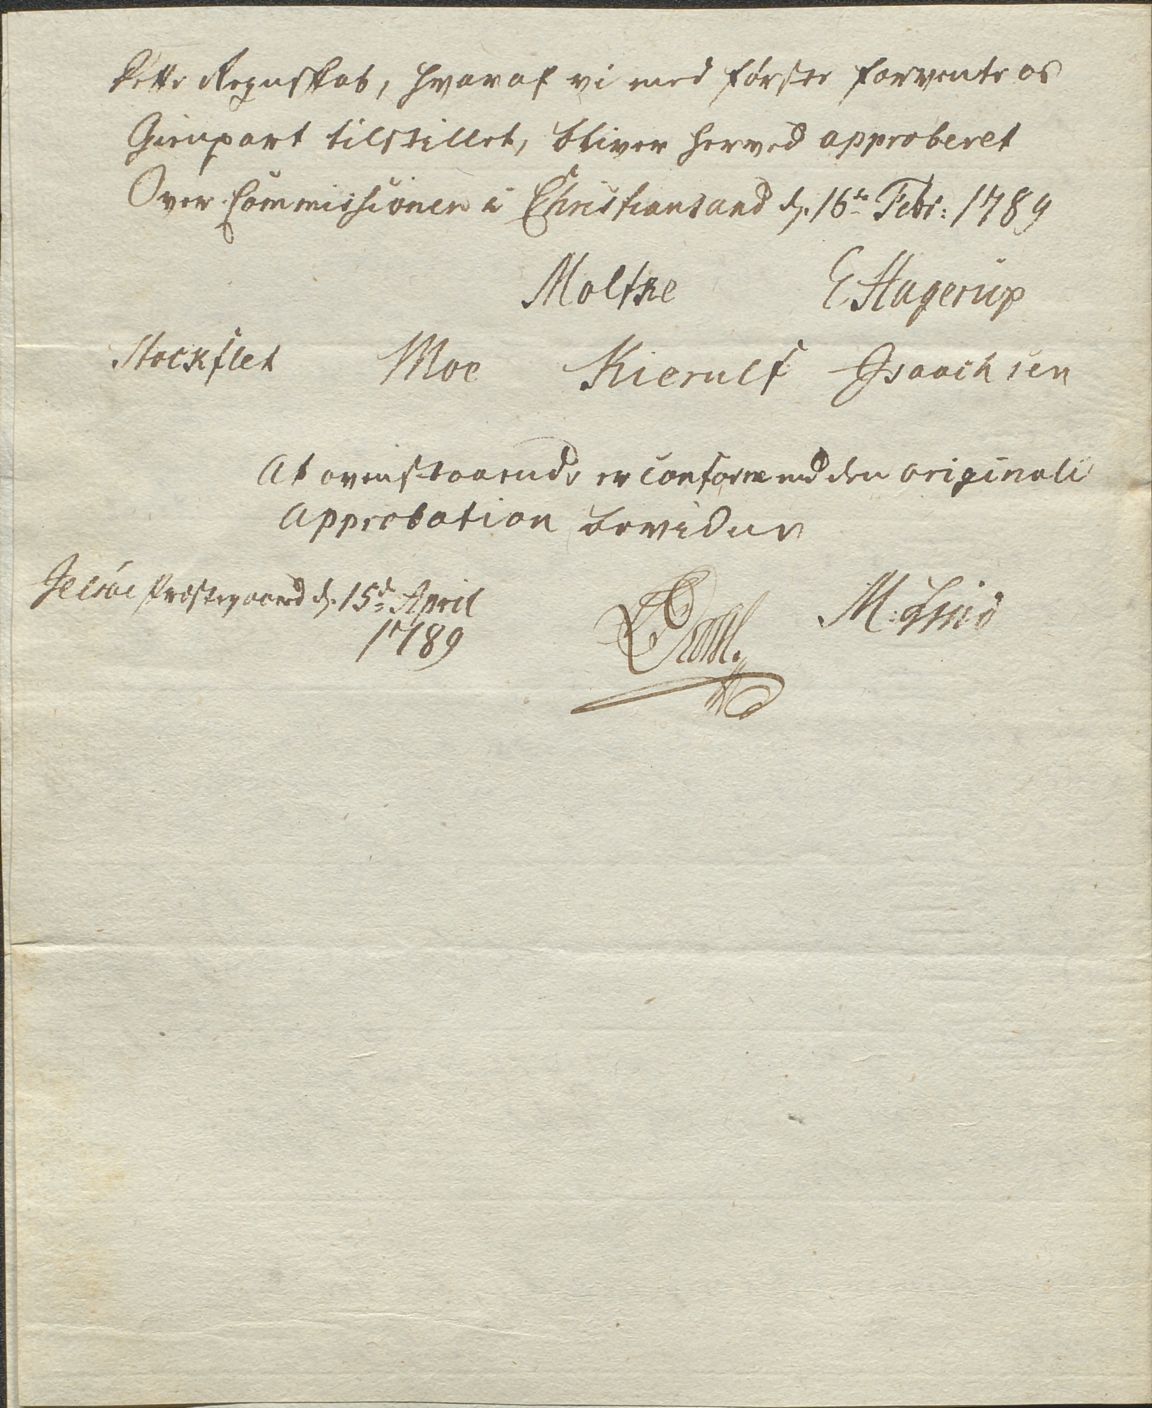 Dette Regnskab, hvoraf vi med første forvente os
Gienpart tilstillet, bliver herved approberet
Over Commissionen i Christiansand d. 16de Febr: 1789
Moltke E Hagerup
Stockflet Moe Kierulf Isaachsen
At ovenstaaende er conform med den originale
Approbation bevidner
Jelsøe Præstegaard d. 15de April
1789
M: